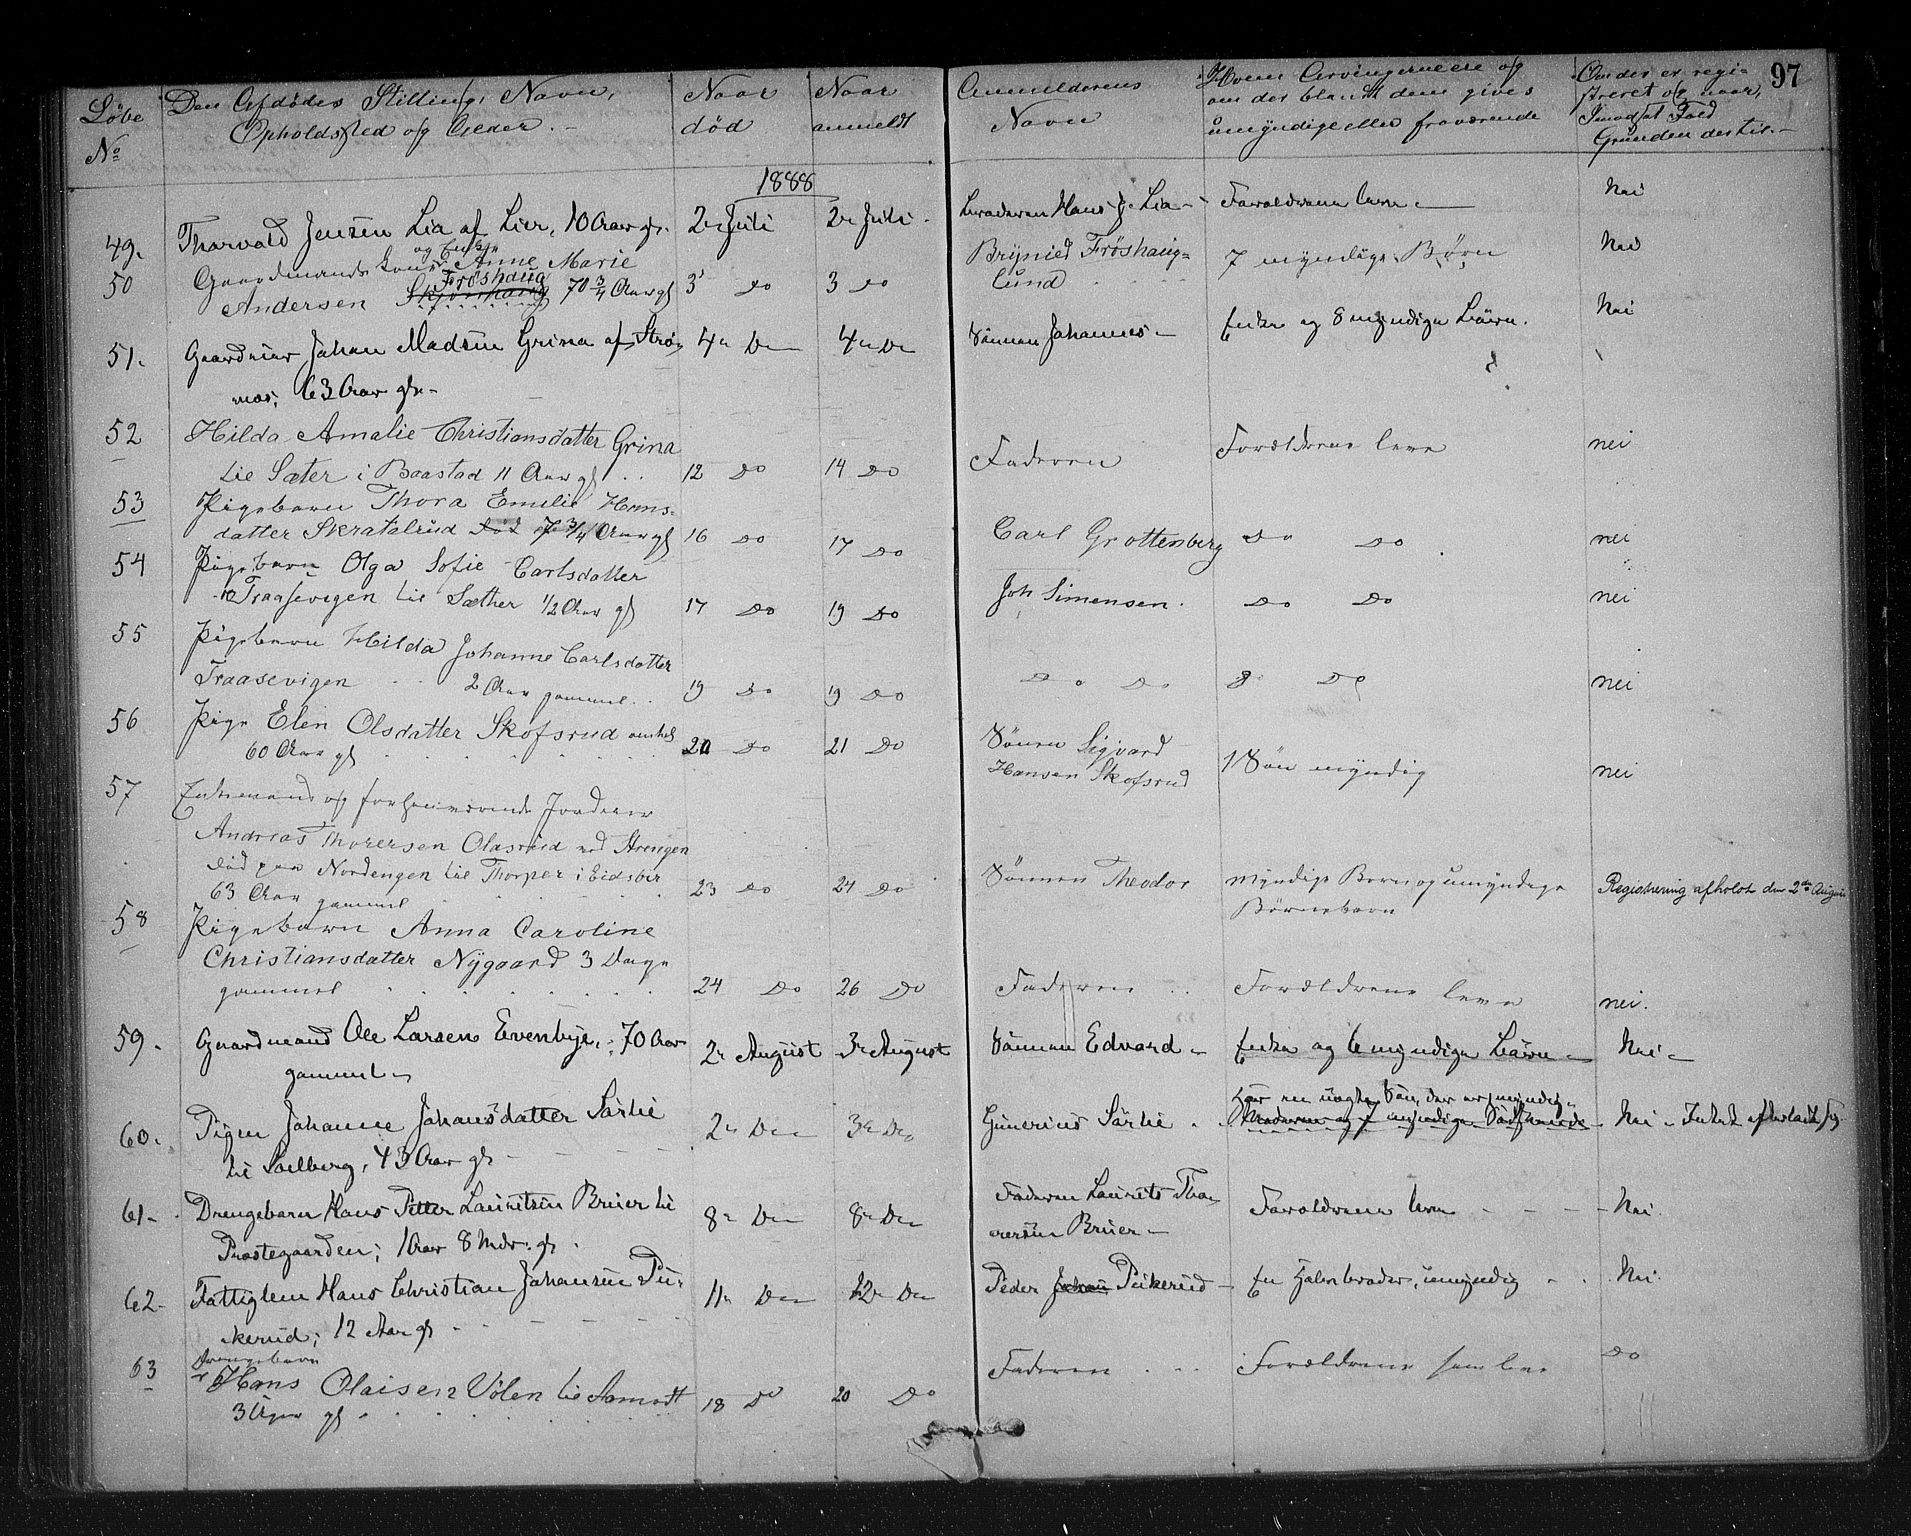 97
Löbe No | Den Afdödes Stilling, Navn, Opholdssted og Alder. | Naar död | Naar anmeldt | Anmelderens Navn | Hvem Arvingerne ere og om der blandt dem gives umyndige eller fraværende | Om der er registreret og naar, i modsat Fald Grunden dertil.
1888
49. Thorvald Jensen Lia af Lier, 10 Aar gl. | 2n Juli | 2n Juli | Broderen Hans J. Lia | Forældrene leve | Nei
50 Gaardmands kone og Enke Anne Marie
Andersen Skjønhaug Frøshaug 70 3/4 Aar gl | 3 Do | 3 Do | Brynild Frøshaug-
lund | 7 myndige Børn | Nei
51. Gaardeier Johan Madsen Grina af Strø-
mos; 63 Aar gl. | 4n Do | 4n Do | Sönnen Johannes | Enke og 8 myndige Börn. | Nei
52 Hilda Amalie Christiansdatter Grina
lie Sæter i Baastad 11 Aar gl | 12 Do | 14 Do | Faderen | Forældrene leve | nei
53 Pigebarn Thora Emilie Hans-
datter Skratalrud Død 7 3/4 Aar gl | 16 Do | 17 Do | Carl Grottenberg | Do Do | nei
54 Pigebarn Olga Sofie Carlsdatter
Traasevigen lie Sæther 1/2 Aar gl | 17 Do | 19 Do | Joh Simensen. | Do Do | nei
55 Pigebarn Hilda Johanne Carlsdatter
Traasevigen 2 Aar gammel | 19 Do | 19 Do | Do Do | Do | nei
56 Pige Elen Olsdatter Skofsrud
60 Aar gl | 20 Do | 21 Do | Sönen Sigvard
Hansen Skofsrud | 1 Søn myndig | nei
57 Enkemand og forhenværende Jordeier
Andreas Thorersen Olasrud ved Strengen
død paa Nordengen lie Thorper i Eidsbir
63 Aar gammel | 23 Do | 24 Do | Sönnen Theodor | Myndige Børn og umyndige
Børnebørn | Registrering afholdt den 2den August
58 Pigebarn Anna Caroline
Christiansdatter Nygaard 3 Dage
gammel | 24 Do | 26 Do | Faderen | Forældrene leve | nei.
59. Gaardmand Ole Larsen Evenbye, 70 Aar
gammel | 2n August | 3n August | Sönnen Edvard | Enke og 6 myndige Börn | Nei
60. Pigen Johanne Johansdatter Sörlie
lie Solberg, 43 Aar gl | 2n Do | 3n Do | Gunerius Sörlie | Har en uægte Sön, der er myndig.
Moderen og 7 myndige Södskende | Nei Intet efterladt sig.
61. Drengebarn Hans Petter Lauritsen Bruer lie
Præstegaarden; 1 Aar 8 Mdr. gl. | 8n Do | 8n Do | Faderen Laurits Tho-
rersen Bruer | Forældrene leve | Nei.
62. Fattiglem Hans Christian Johansen Pu-
kerud; 12 Aar gl | 11n Do | 12n Do | Peder Johan Pukerud | En Halvbroder, umyndig | Nei.
63 Drengebarn
Hans Olaisen Völen lie Aamodt
3 Uger gl | 18 Do | 20 Do | Faderen | Forældrene som leve | Do